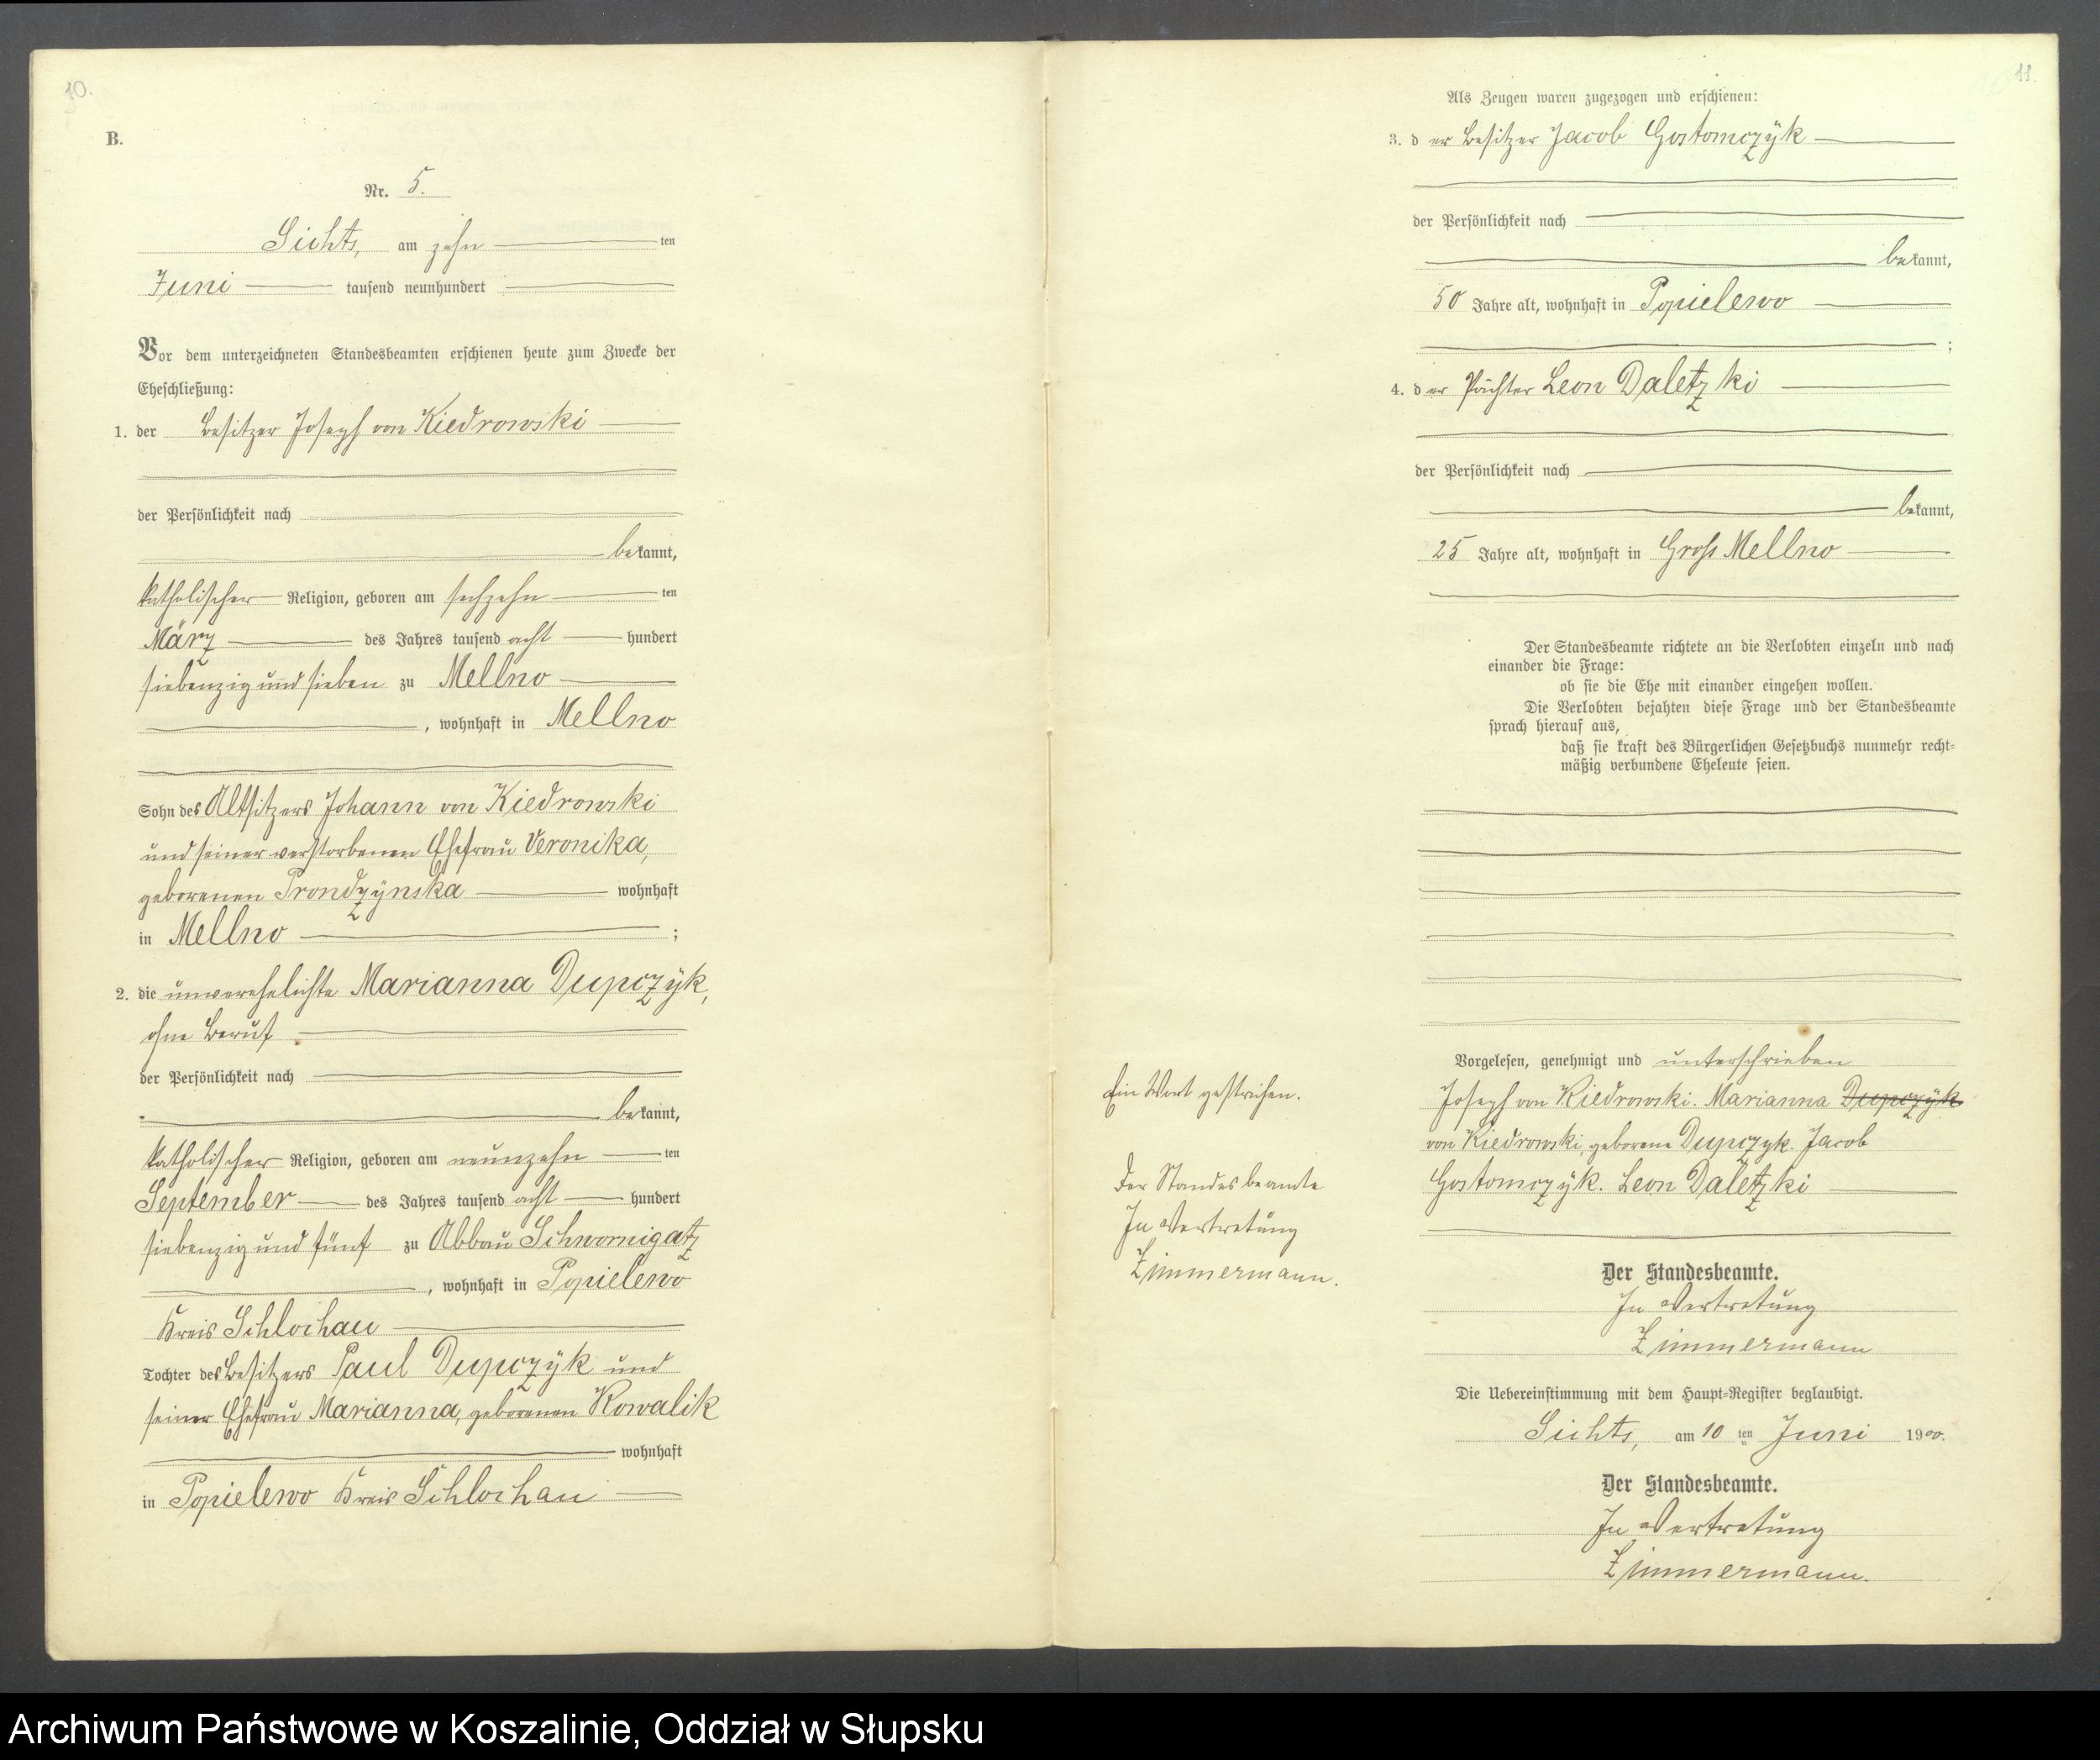 10.
B.
Nr. 5.
Lichts, am zehn ten
Juni tausend neunhundert
Vor dem unterzeichneten Standesbeamten erschienen heute zum Zwecke der
Eheschließung:
1. der Besitzer Joseph von Kiedrowski
der Persönlichkeit nach
bekannt,
katholischer Religion, geboren am sechzehn ten
März des Jahres tausend acht hundert
siebenzig und sieben zu Mellno
, wohnhaft in Mellno
Sohn des Altsitzers Johann von Kiedrowski
und seiner verstorbenen Ehefrau Veronika,
geborenen Prondzÿnska wohnhaft
in Mellno ;
2. die unverehelichte Marianna Dupczÿk,
ohne Beruf
der Persönlichkeit nach
bekannt,
katholischer Religion, geboren am neunzehn ten
September des Jahres tausend acht hundert
siebenzig und fünf zu Abbau Schwornigatz
, wohnhaft in Popielewo
Kreis Schlochau
Tochter des Besitzers Paul Dupczÿk und
seiner Ehefrau Marianna, geborenen Kowalik
wohnhaft
in Popielewo Kreis Schlochau
11.
Als Zeugen waren zugezogen und erschienen:
3. der Besitzer Jacob Gostomczÿk
der Persönlichkeit nach
bekannt,
50 Jahre alt, wohnhaft in Popielewo
;
4. der Pächter Leon Daletzki
der Persönlichkeit nach
bekannt,
25 Jahre alt, wohnhaft in Gross Mellno
Der Standesbeamte richtete an die Verlobten einzeln und nach
einander die Frage:
ob sie die Ehe mit einander eingehen wollen.
Die Verlobten bejahten diese Frage und der Standesbeamte
sprach hierauf aus,
daß sie kraft des Bürgerlichen Gesetzbuchs nunmehr recht-
mäßig verbundene Eheleute seien.
Vorgelesen, genehmigt und unterschrieben
Joseph von Kiedrowski. Marianna Dupczÿk
von Kiedrowski, geborene Dupczyk. Jacob
Gostomczÿk. Leon Daletzki
Ein Wort gestrichen.
Der Standesbeamte
In Vertretung
Zimmermann.
Der Standesbeamte.
In Vertretung
Zimmermann
Die Uebereinstimmung mit dem Haupt-Register beglaubigt.
Lichts, am 10 ten Juni 1900.
Der Standesbeamte.
In Vertretung
Zimmermann.
Archiwum Państwowe w Koszalinie, Oddział w Słupsku